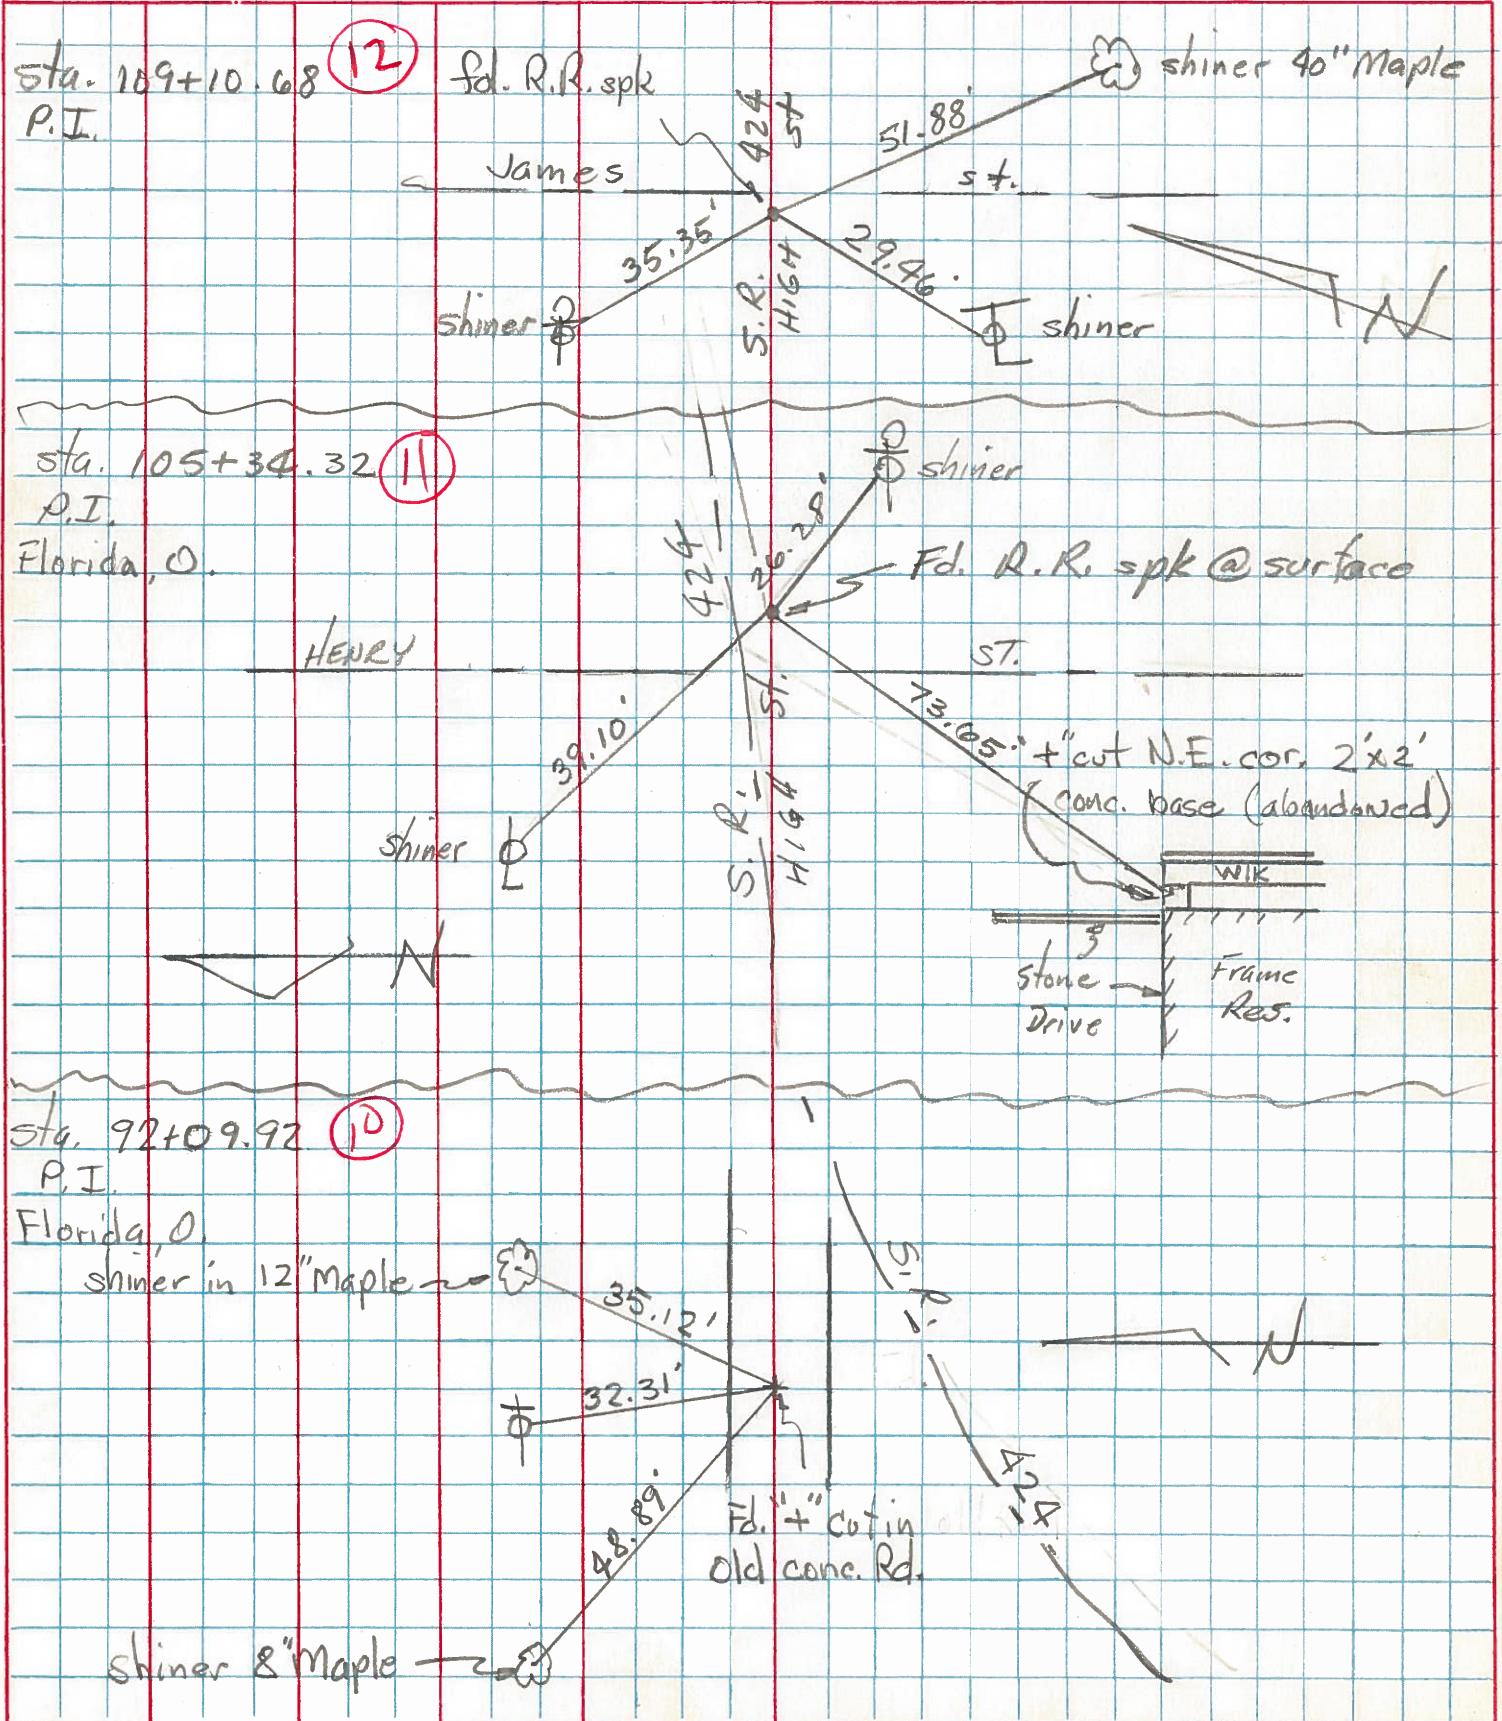 sta. 109+10.68 12 fd. R.R. spk
P.I.
424
St
shiner 40" Maple
51.88'
James st.
35.35'
29.46'
S.R.
HIGH
shiner
shiner
N
sta. 105+34.32 11
P.I.
Florida, O.
shiner
26.28'
424
Fd. R.R. spk @ surface
HENRY ST.
St.
39.10'
73.65'
"+" cut N.E. cor. 2'x2'
conc. base (abandoned)
S.R.
HIGH
shiner
Wlk
N
Stone
Drive
Frame
Res.
sta. 92+09.92 10
P.I.
Florida, O.
shiner in 12" Maple
35.12'
S.R.
32.31'
N
48.89'
424
Fd. "+" cut in
old conc. Rd.
shiner 8" Maple